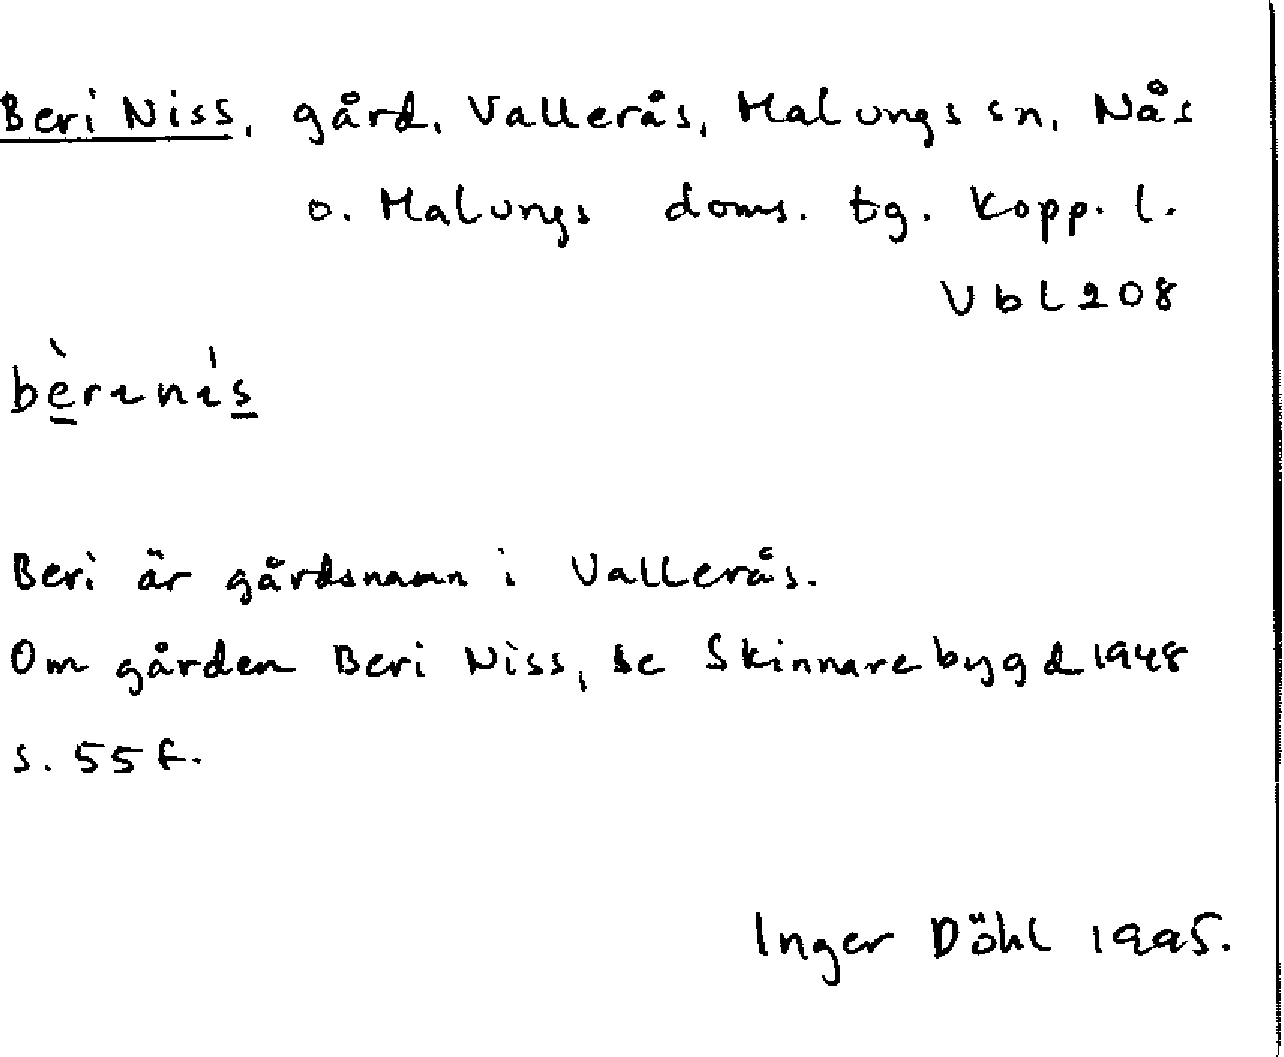 Beri Niss, gård, Vallerås, Malungs sn, Nås
o. Malungs doms. tg. Kopp. l.
Vbl 208
bèrɪnɪs
Beri är gårdsnamn i Vallerås.
Om gården Beri Niss, se Skinnarebygd 1948
s. 55 f.
Inger Döhl 1995.